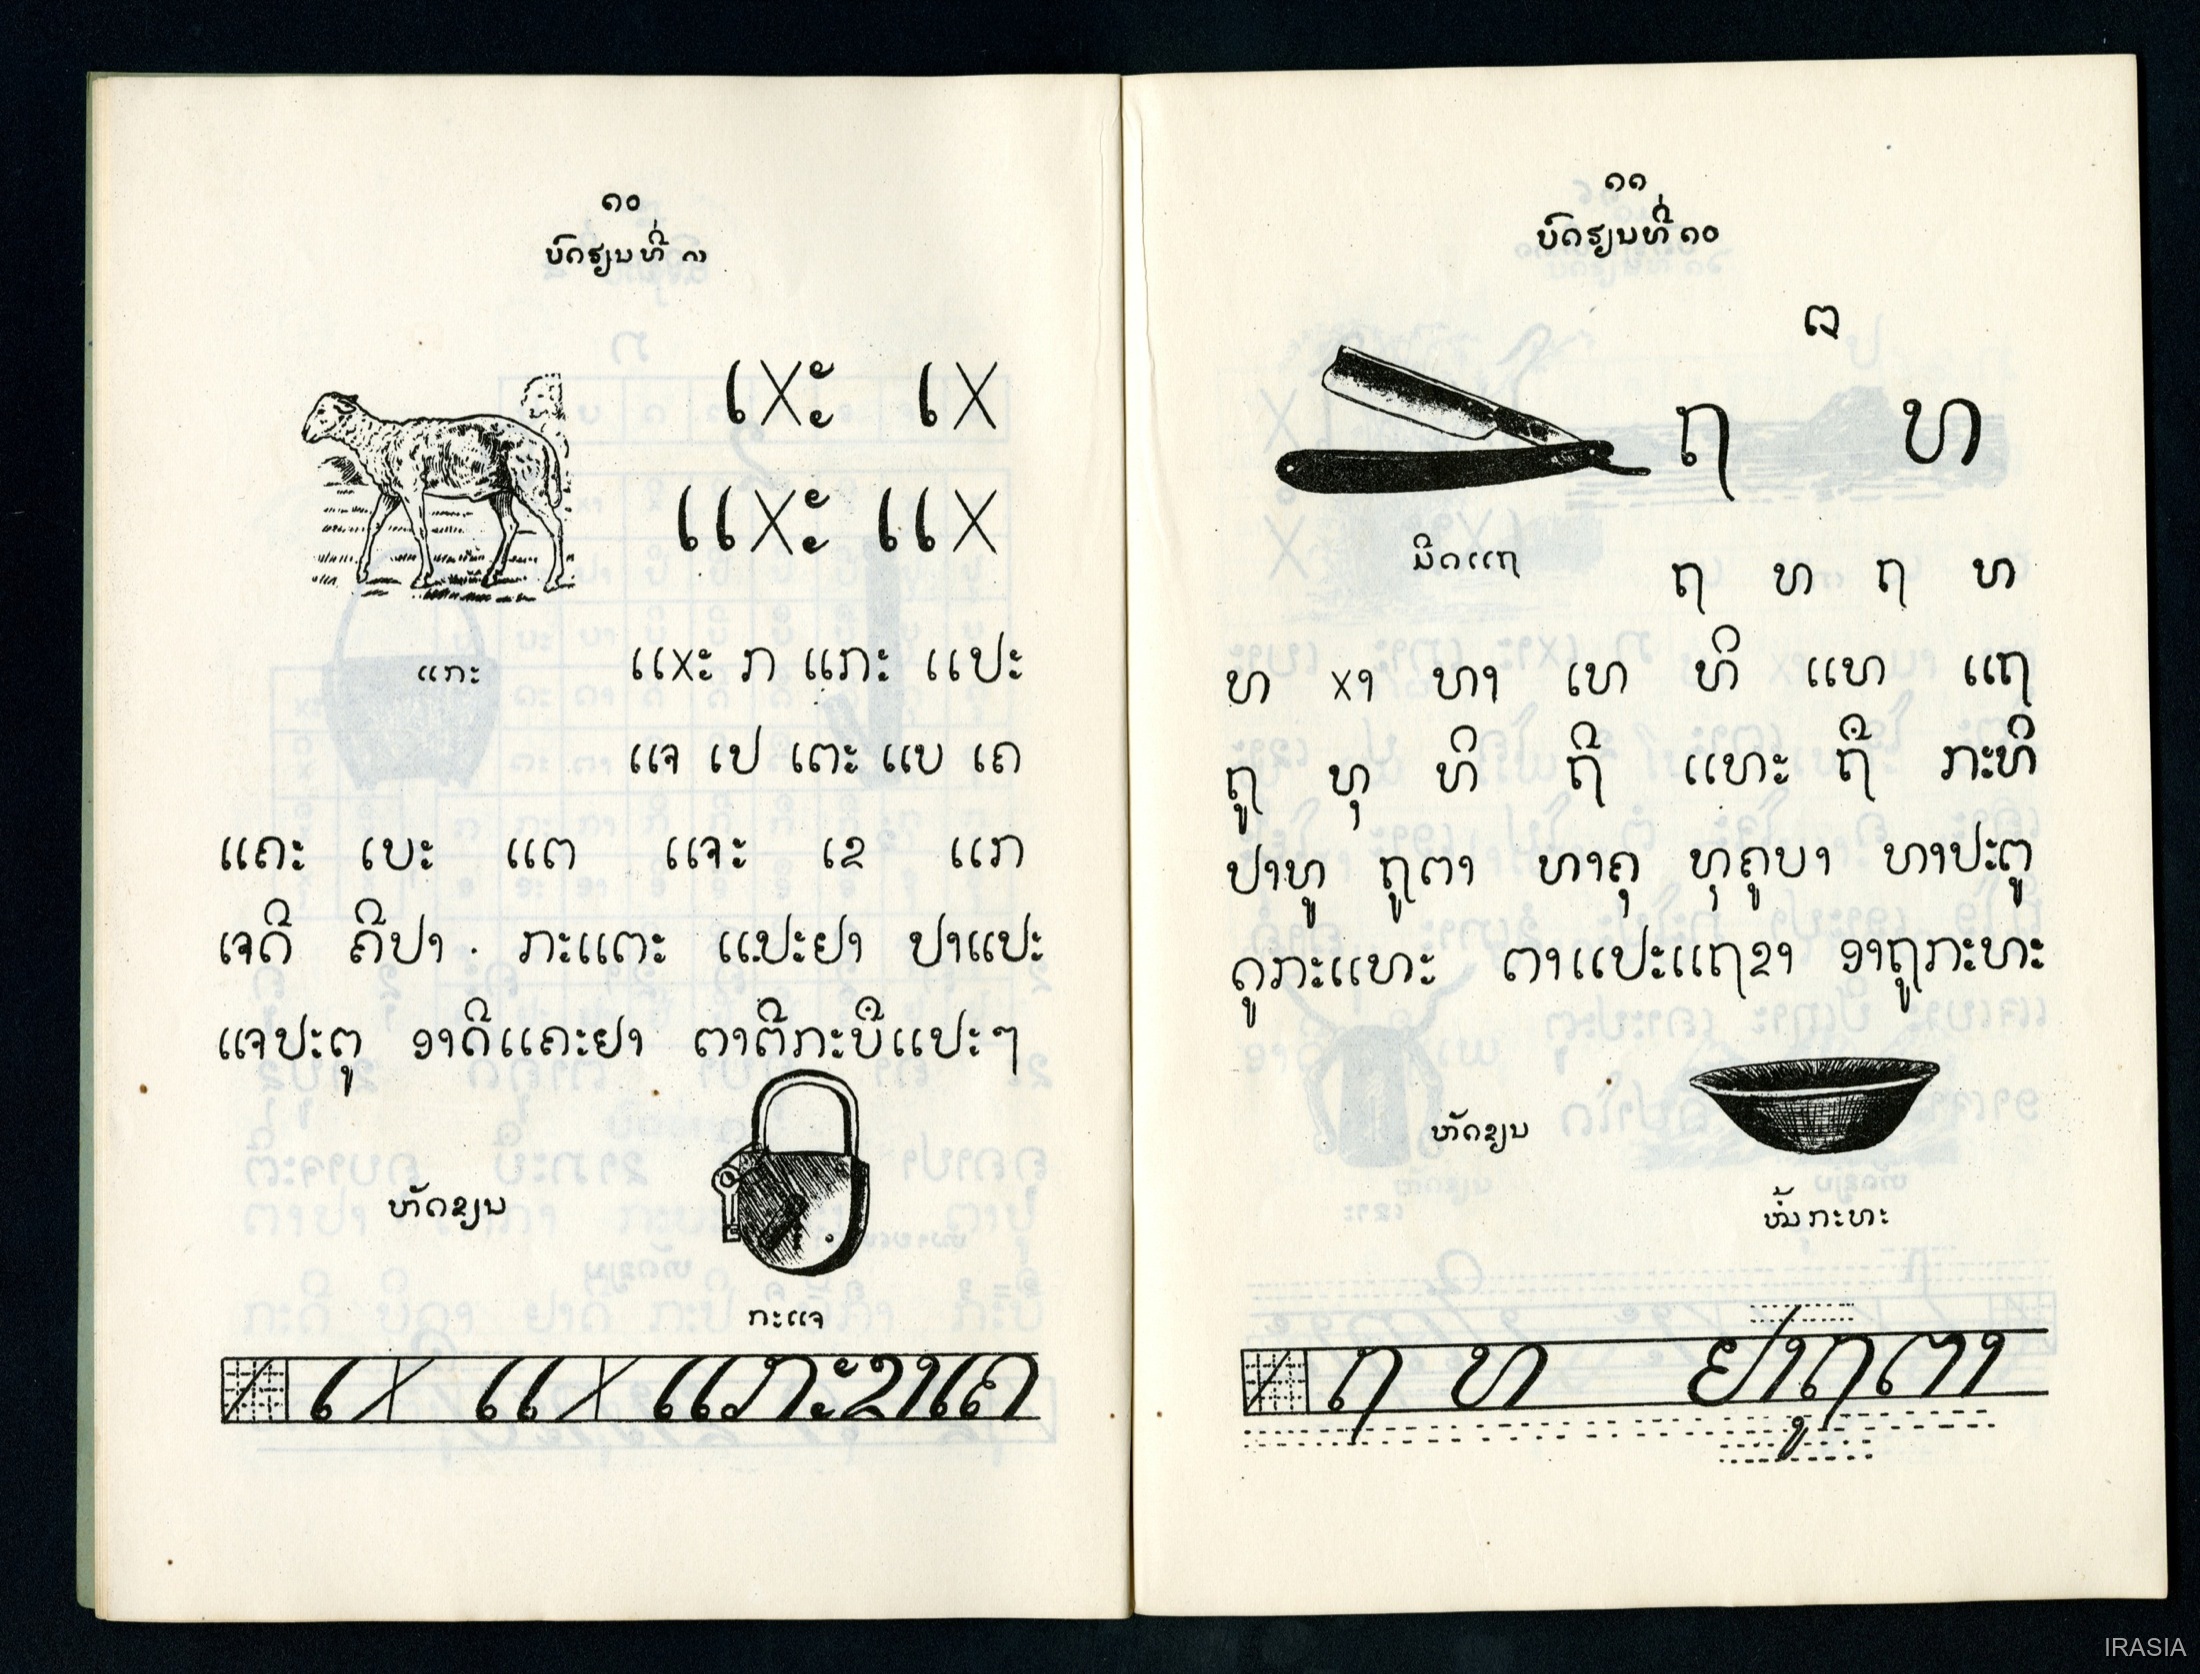 ໑໐
ບົດຮຽນທີ່ ໙
ເxະ ເx
ແxະ ແx
ແກະ
ແxະ ກ ແກະ ແປະ
ແຈ ເປ ເຕະ ແບ ເຄ
ແຄະ ເບະ ແຕ ແຈະ ເຂ ແກ
ເຈດີ ຄີປາ . ກະແຕະ ແປະຢາ ປາແປະ
ແຈປະຕູ ອາດີແຄະຢາ ຕາຕີກະບືແປະໆ
ຫັດຂຽນ
ກະແຈ
ເx ແx ແກະຂາແຄ
໑໑
ບົດຮຽນທີ່ ໑໐
ຖ ທ
ມີດແຖ
ຖ ທ ຖ ທ
ທ xາ ທາ ເທ ທິ ແທ ແຖ
ຖູ ທຸ ທິ ຖີ ແທະ ຖື ກະທິ
ປາທູ ຖູຕາ ທາຄຸ ທຸຄູບາ ທາປະຕູ
ຖູກະແທະ ຕາແປະແຖຂາ ອາຖູກະທະ
ຫັດຂຽນ
ໝໍ້ກະທະ
ຖ ທ ຢ່າຖູຕາ
IRASIA